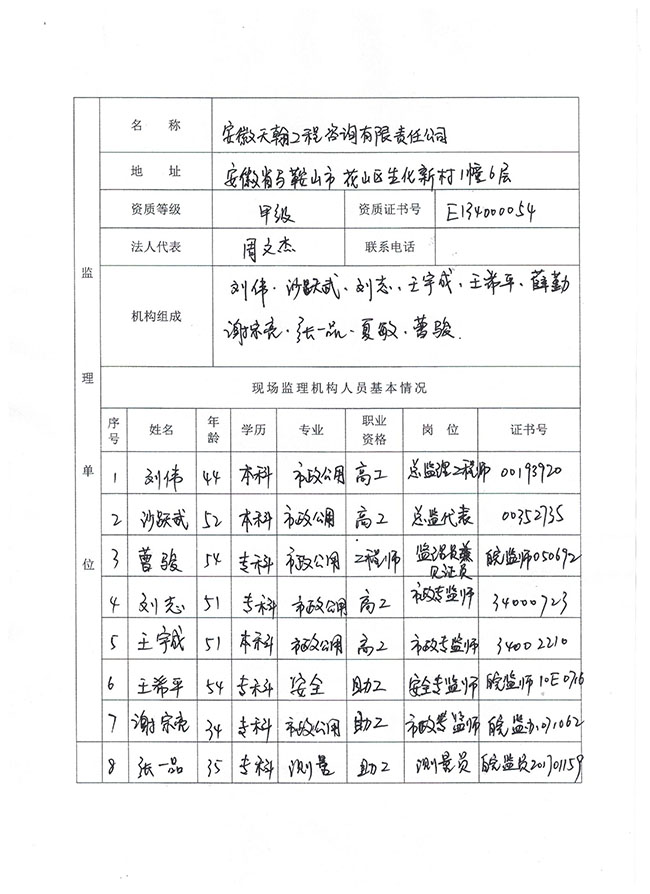 监理单位
名 称 安徽天翰工程咨询有限责任公司
地 址 安徽省马鞍山市花山区生化新村11幢6层
资质等级 甲级 资质证书号 E134000054
法人代表 周文杰 联系电话
机构组成 刘伟、沙跃武、刘志、王宇成、王希平、薛勤
谢宗亮、张一品、夏敏、曹骏.
现场监理机构人员基本情况
序号 姓名 年龄 学历 专业 职业资格 岗 位 证书号
1 刘伟 44 本科 市政公用 高工 总监理工程师 00193920
2 沙跃武 52 本科 市政公用 高工 总监代表 00352735
3 曹骏 54 专科 市政公用 工程师 监理员兼见证员 皖监师050692
4 刘志 51 专科 市政公用 高工 市政专监师 34000723
5 王宇成 51 本科 市政公用 高工 市政专监师 34002210
6 王希平 54 专科 安全 助工 安全专监师 皖监师10E0716
7 谢宗亮 34 专科 市政公用 助工 市政专监师 皖监 071062
8 张一品 35 专科 测量 助工 测量员 皖监员201701159